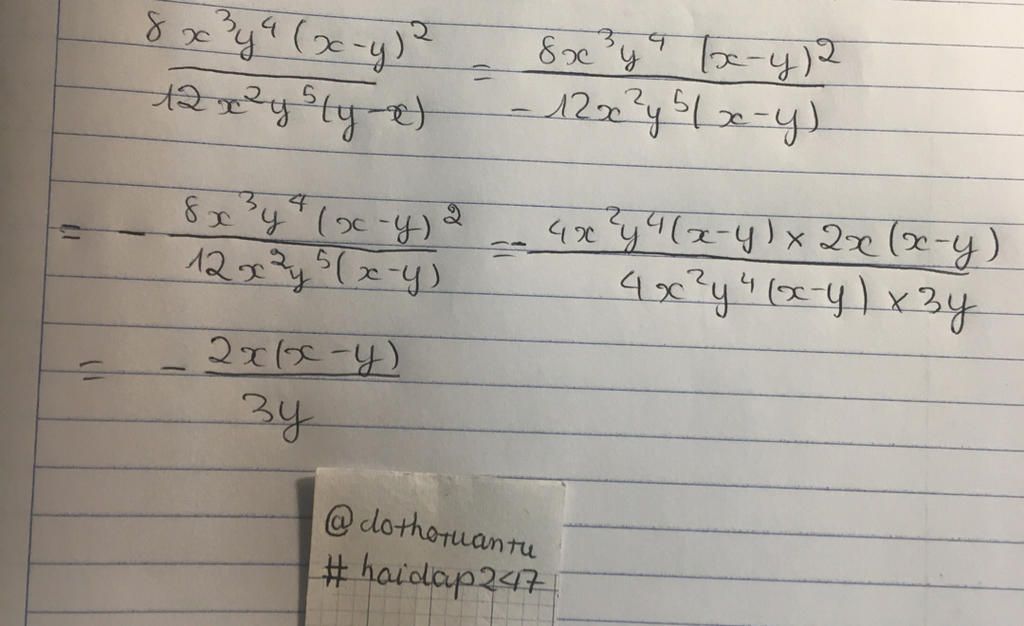 8x³y⁴(x-y)² / 12x²y⁵(y-x) = 8x³y⁴ (x-y)² / -12x²y⁵(x-y)
= - 8x³y⁴(x-y)² / 12x²y⁵(x-y) = - 4x²y⁴(x-y) × 2x(x-y) / 4x²y⁴(x-y) × 3y
= - 2x(x-y) / 3y
@dothotuantu
# hoidap247